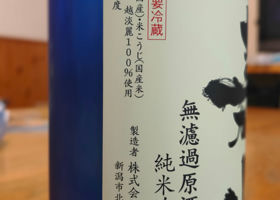 無濾過原酒
純米
製造者 株式会
新潟市北
要冷蔵
国産)・米こうじ(国産米)
越淡麗100%使用
度